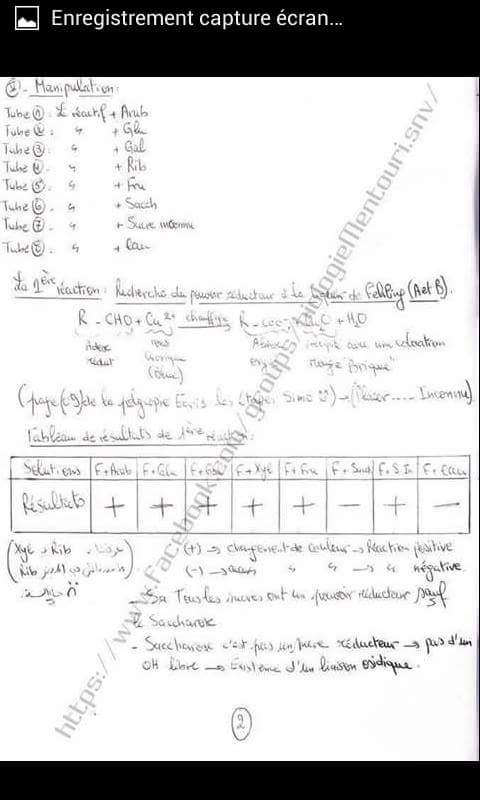 Enregistrement capture écran...
V - Manipulation:
Tube ①: Le réactif + Arab
Tube ②: " + Glu
Tube ③: " + Gal
Tube ④: " + Rib
Tube ⑤: " + Fru
Tube ⑥: " + Sacch
Tube ⑦: " + Sucre inconnu
Tube ⑧: " + Eau
La 1ère réaction: Recherche du pouvoir réducteur à la liqueur de Fehling (A et B).
R - CHO + Cu2+ chauffage R - COO- + Cu2O + H2O
ions
cuivrique
(bleue)
rouge "brique"
de la polycopie Ecris les étapes
Inconnu).
Tableau de résultats de 1ère réaction:
Solutions F+Arab F+Glu F+Gal F+Xyl F+Fru F+Sacc F+S.In F+Eau
Résultats + + + + + - + -
(+) → changement de couleur → Réaction positive
(-) → aucun " " → " négative.
Tous les sucres ont un pouvoir réducteur sauf
le Saccharose
- Saccharose c'est pas un sucre réducteur → pas d'un
OH libre → Existence d'un liaison osidique.
2
https://www.facebook.com/groups/biologieMentouri.snv/